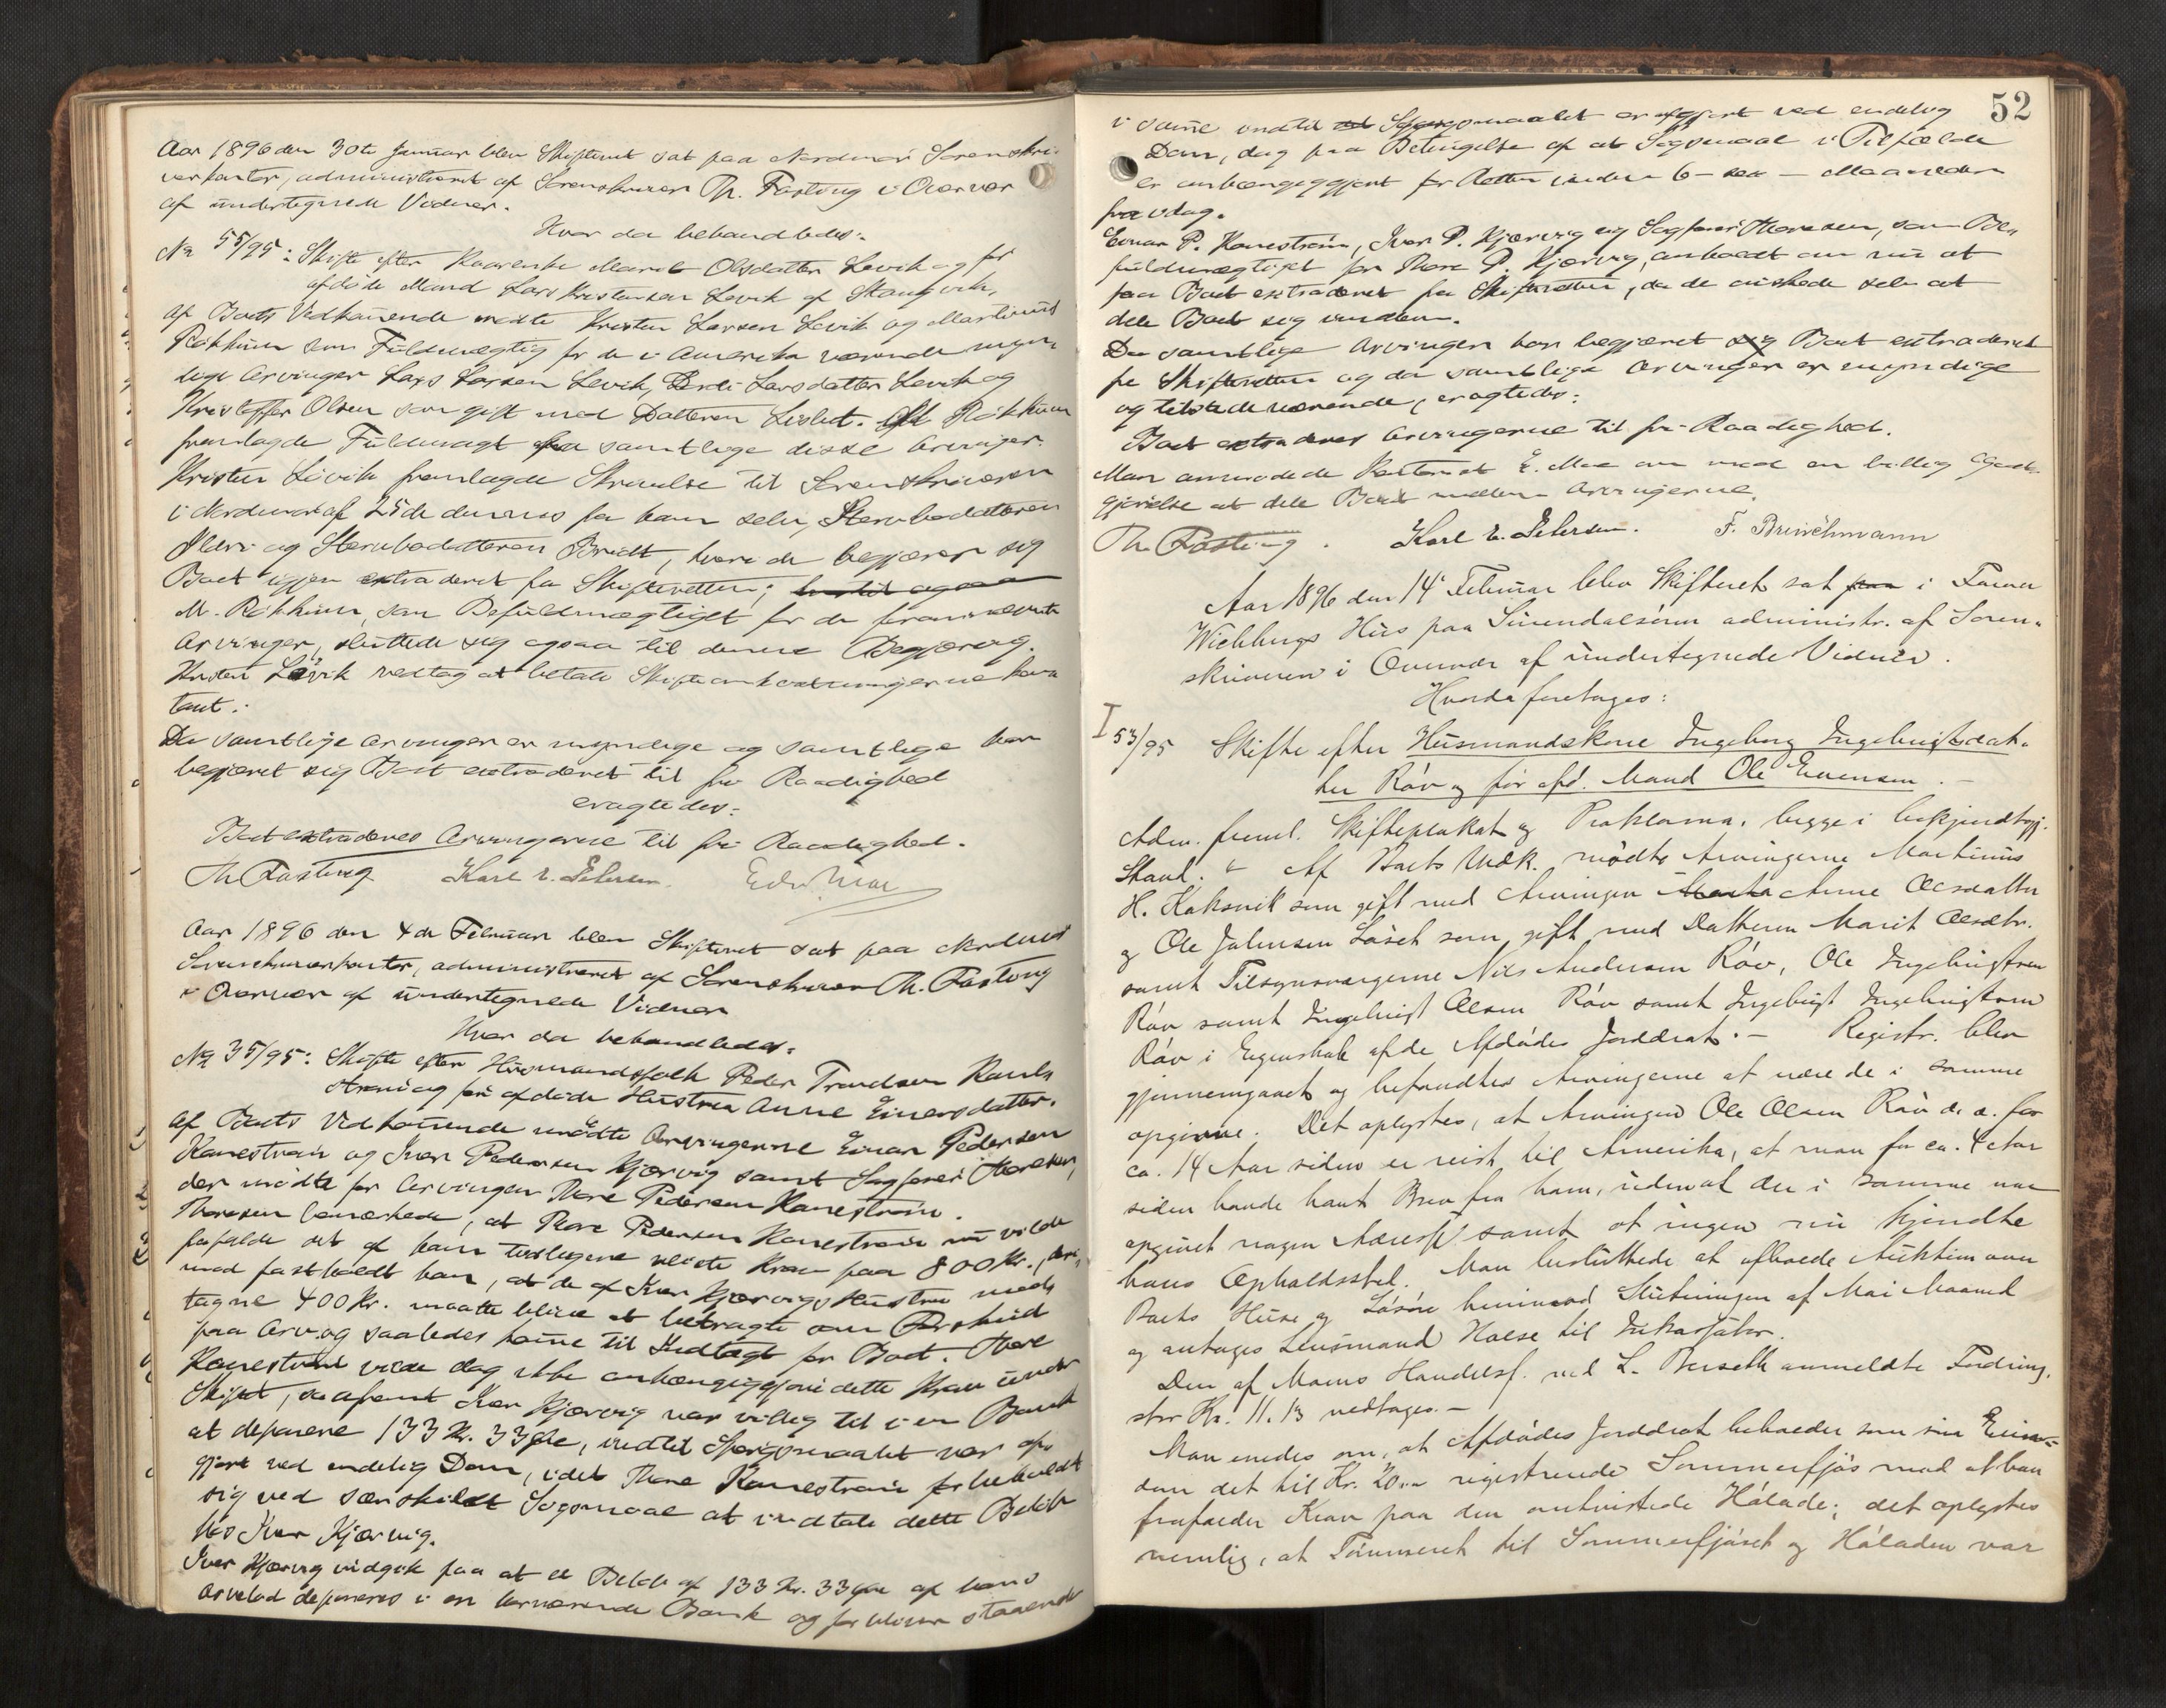 Aar 1896 den 30te Januar blev Skifteret sat paa Nordmør Sorenskri-
verkontor, administreret af Sorenskriver Th. Fasting i Overvær
af undertegnede Vidner.
Hvor da behandledes:
No 55/95: Skifte efter Kaarenke Marit Olsdatter Løvik og før
afdøde Mand Lars Kristensen Løvik af Stangvik.
af Boets Vedkommende mødte Kristen Larsen Løvik og Martinus
Røkkum som Fuldmægtig for de i Amerika værende myn-
dige Arvinger Lars Larsen Løvik, Berit Larsdatter Løvik og
Kristoffer Olsen som gift med Datteren Lisbet. Røkkum
fremlagde Fuldmagt fra samtlige disse Arvinger.
Kristen Løvik fremlagde Skrivelse til Sorenskriveren
i Nordmør af 25de dennes fra ham selv, Stervbodatteren
Ildri og Stervbodatteren Bredt, hvori de begjærer sig
Boet igjen extraderet fra Skifteretten;
M. Røkkum, som Befuldmægtiget for de forannævnte
Arvinger, sluttede sig ogsaa til denne Begjæring.
Kristen Løvik vedtog at betale Skifteomkostningerne kon-
tant.
Da samtlige Arvinger er myndige og samtlige har
begjæret sig Boet extraderet til fri Raadighed
eragtedes:
Boet extraderes Arvingerne til fri Raadighed.
Th Fasting Karl E. Pehrsen. Edv. Moe
Aar 1896 den 4de Februar blev Skifteret sat paa Nordmør
Sorenskriverkontor, administreret af Sorenskriver Th. Fasting
i Overvær af undertegnede Vidner
Hvor da behandledes:
No 35/95: Skifte efter Husmandsfolk Peder Trondsen Kanestrøm
og før afdøde Hustru Anne Einersdatter.
af Boets Vedkommende mødte Arvingerne Einar Pedersen
Kanestrøm og Iver Pedersen Kjørvig samt Sagfører Thoresen,
der mødte for Arvingen Thore Pedersen Kanestrøm.
Thoresen bemærkede, at Thore Pedersen Kanestrøm nu vilde
frafalde det af ham tidligere reiste Krav paa 800 Kr., der-
imod fastholdt han, at de af Iver Kjørvigs Hustru mod-
tagne 400 Kr. maatte blive at betragte om Forskud
paa Arv og saaledes komme til Indtægt for Boet. Thore
Kanestrøm vilde dog ikke anhængiggjøre dette Krav under
Skiftet, saafremt Iver Kjørvig var villig til i en Bank
at deponere 133 Kr. 33 Øre, indtil Spørgsmaalet var af-
gjort ved endelig Dom, idet Thore Kanestrøm forbeholdt
sig ved særskildt Søgsmaal at indtale dette Beløb
hos Iver Kjørvig.
Iver Kjørvig indgik paa at et Beløb af 133 Kr. 33 Øre af hans
Arvelod deponeres i en herværende Bank og forbliver staaende
52
i samme indtil Spørgsmaalet er afgjort ved endelig
Dom, dog paa Betingelse af at Søgsmaal i Tilfælde
er anhængiggjort for Retten inden 6 - sex - Maaneder
fra idag.
Einar P. Kanestrøm, Iver P. Kjørvig og Sagfører Thoresen, som Be-
fuldmægtiget for Thore P. Kjørvig, anholdt om nu at
faa Boet extraderet fra Skifteretten, da de ønskede selv at
dele Boet sig imellem.
Da samtlige Arvinger har begjæret sig Boet extraderet
fra Skifteretten og da samtlige Arvinger er myndige
og tilstedeværende, eragtedes:
Boet extraderes Arvingerne til fri Raadighed.
Man anmodede Kontorist E. Moe om mod en billig Godt-
gjørelse at dele Boet mellem Arvingerne.
Th Fasting. Karl E. Pehrsen. F. Bruüchmann
Aar 1896 den 14 Februar blev Skifteret sat paa i
Wiebbergs Hus paa Surendalsøren administr. af Soren-
skriveren i Overvær af undertegnede Vidner.
Hvorda foretages:
I 53/95 Skifte efter Husmandskone Ingeborg Ingebrigtsdat-
ter Røv og før afd. Mand Ole Evensen.
Adm. freml. Skifteplakat og Proklama, begge i bekjendtgj.
Stand. - Af Boets Vedk. mødte Arvingerne Martinus
H. Kaksvik som gift med Arvingen Marta Anne Olsdatter
og Ole Johnsen Løset som gift med Datteren Marit Olsdtr.
samt Tilsynsværgerne Nils Andersen Røv, Ole Ingebrigtsen
Røv samt Ingebrigt Olsen Røv samt Ingebrigt Ingebrigtsen
Røv i Egenskab af de Afdødes Jorddrot. - Registr. blev
gjennemgaaet og befandtes Arvingerne at være de i samme
opgivne. Det oplystes, at Arvingen Ole Olsen Røv d. æ. for
ca. 14 Aar siden er reist til Amerika, at man for ca. 4 Aar
siden havde havt Brev fra ham, uden at der i samme var
opgivet nogen Adresse samt at ingen nu kjendte
hans Opholdssted. Man besluttede at afholde Auktion over
Boets Huse og Løsøre henimod Slutningen af Mai Maaned
og antages Lensmand Halse til Inkassator.
Den af Moens Handelsf. ved L. Berseth anmeldte Fordring,
stor Kr. 11.13 vedtages. -
Man enedes om, at Afdødes Jorddrot beholder som sin Eien-
dom det til Kr. 20.- registrerede Sommerfjøs mod at han
frafalder Krav paa den omtvistede Hølade; det oplystes
nemlig, at Tømmeret til Sommerfjøset og Høladen var